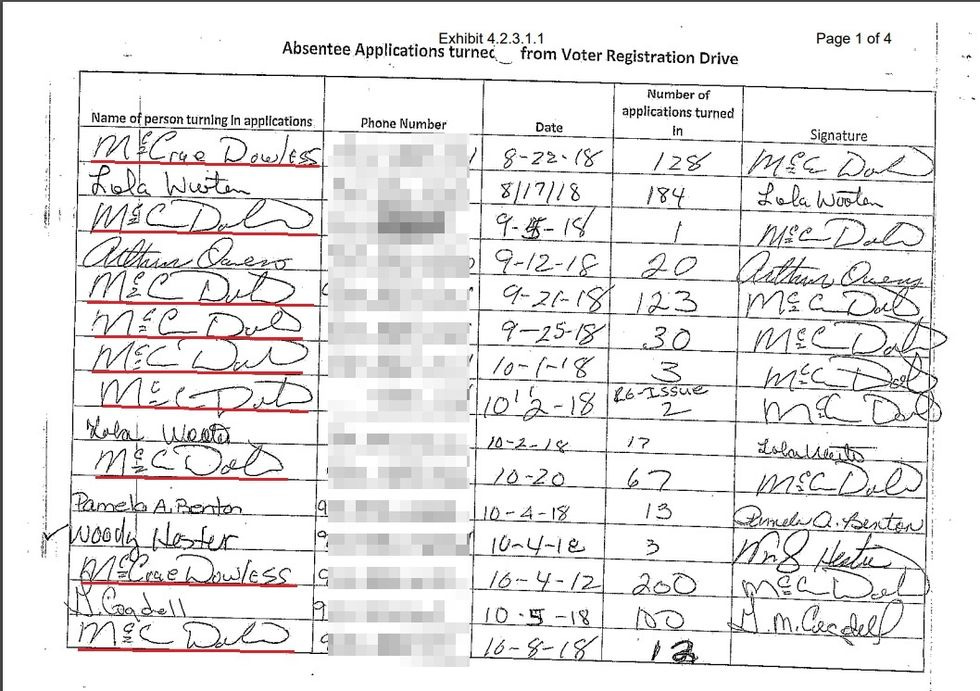 Exhibit 4.2.3.1.1 Page 1 of 4
Absentee Applications turned from Voter Registration Drive
Name of person turning in applications Phone Number Date Number of applications turned in Signature
McCrae Dowless 8-22-18 128 McC Dowl
Lola Wooten 8/17/18 184 Lola Wooten
McC 9-5-18 1 McC
Arthur Owens 9-12-18 20 Arthur Owens
McC 9-21-18 123 McC
McC 9-25-18 30 McC
McC 10-1-18 3 McC
McC 10-2-18 Re-Issue 2 McC
Lola Wooten 10-2-18 17 Lola Wooten
McC 10-20 67 McC
Pamela A. Benton 9 10-4-18 13 Pamela A. Benton
Woody Hester 9 10-4-18 3 Hester
McCrae Dowless 9 10-4-12 200 McC
J. Cogdell 9 10-5-18 100 J. M. Cogdell
McC 9 10-8-18 12